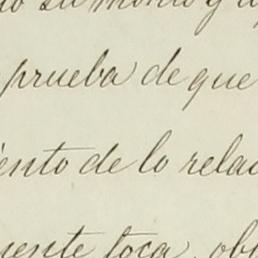 su mismo y
prueba de que
ento de lo relac
uente toca, ob